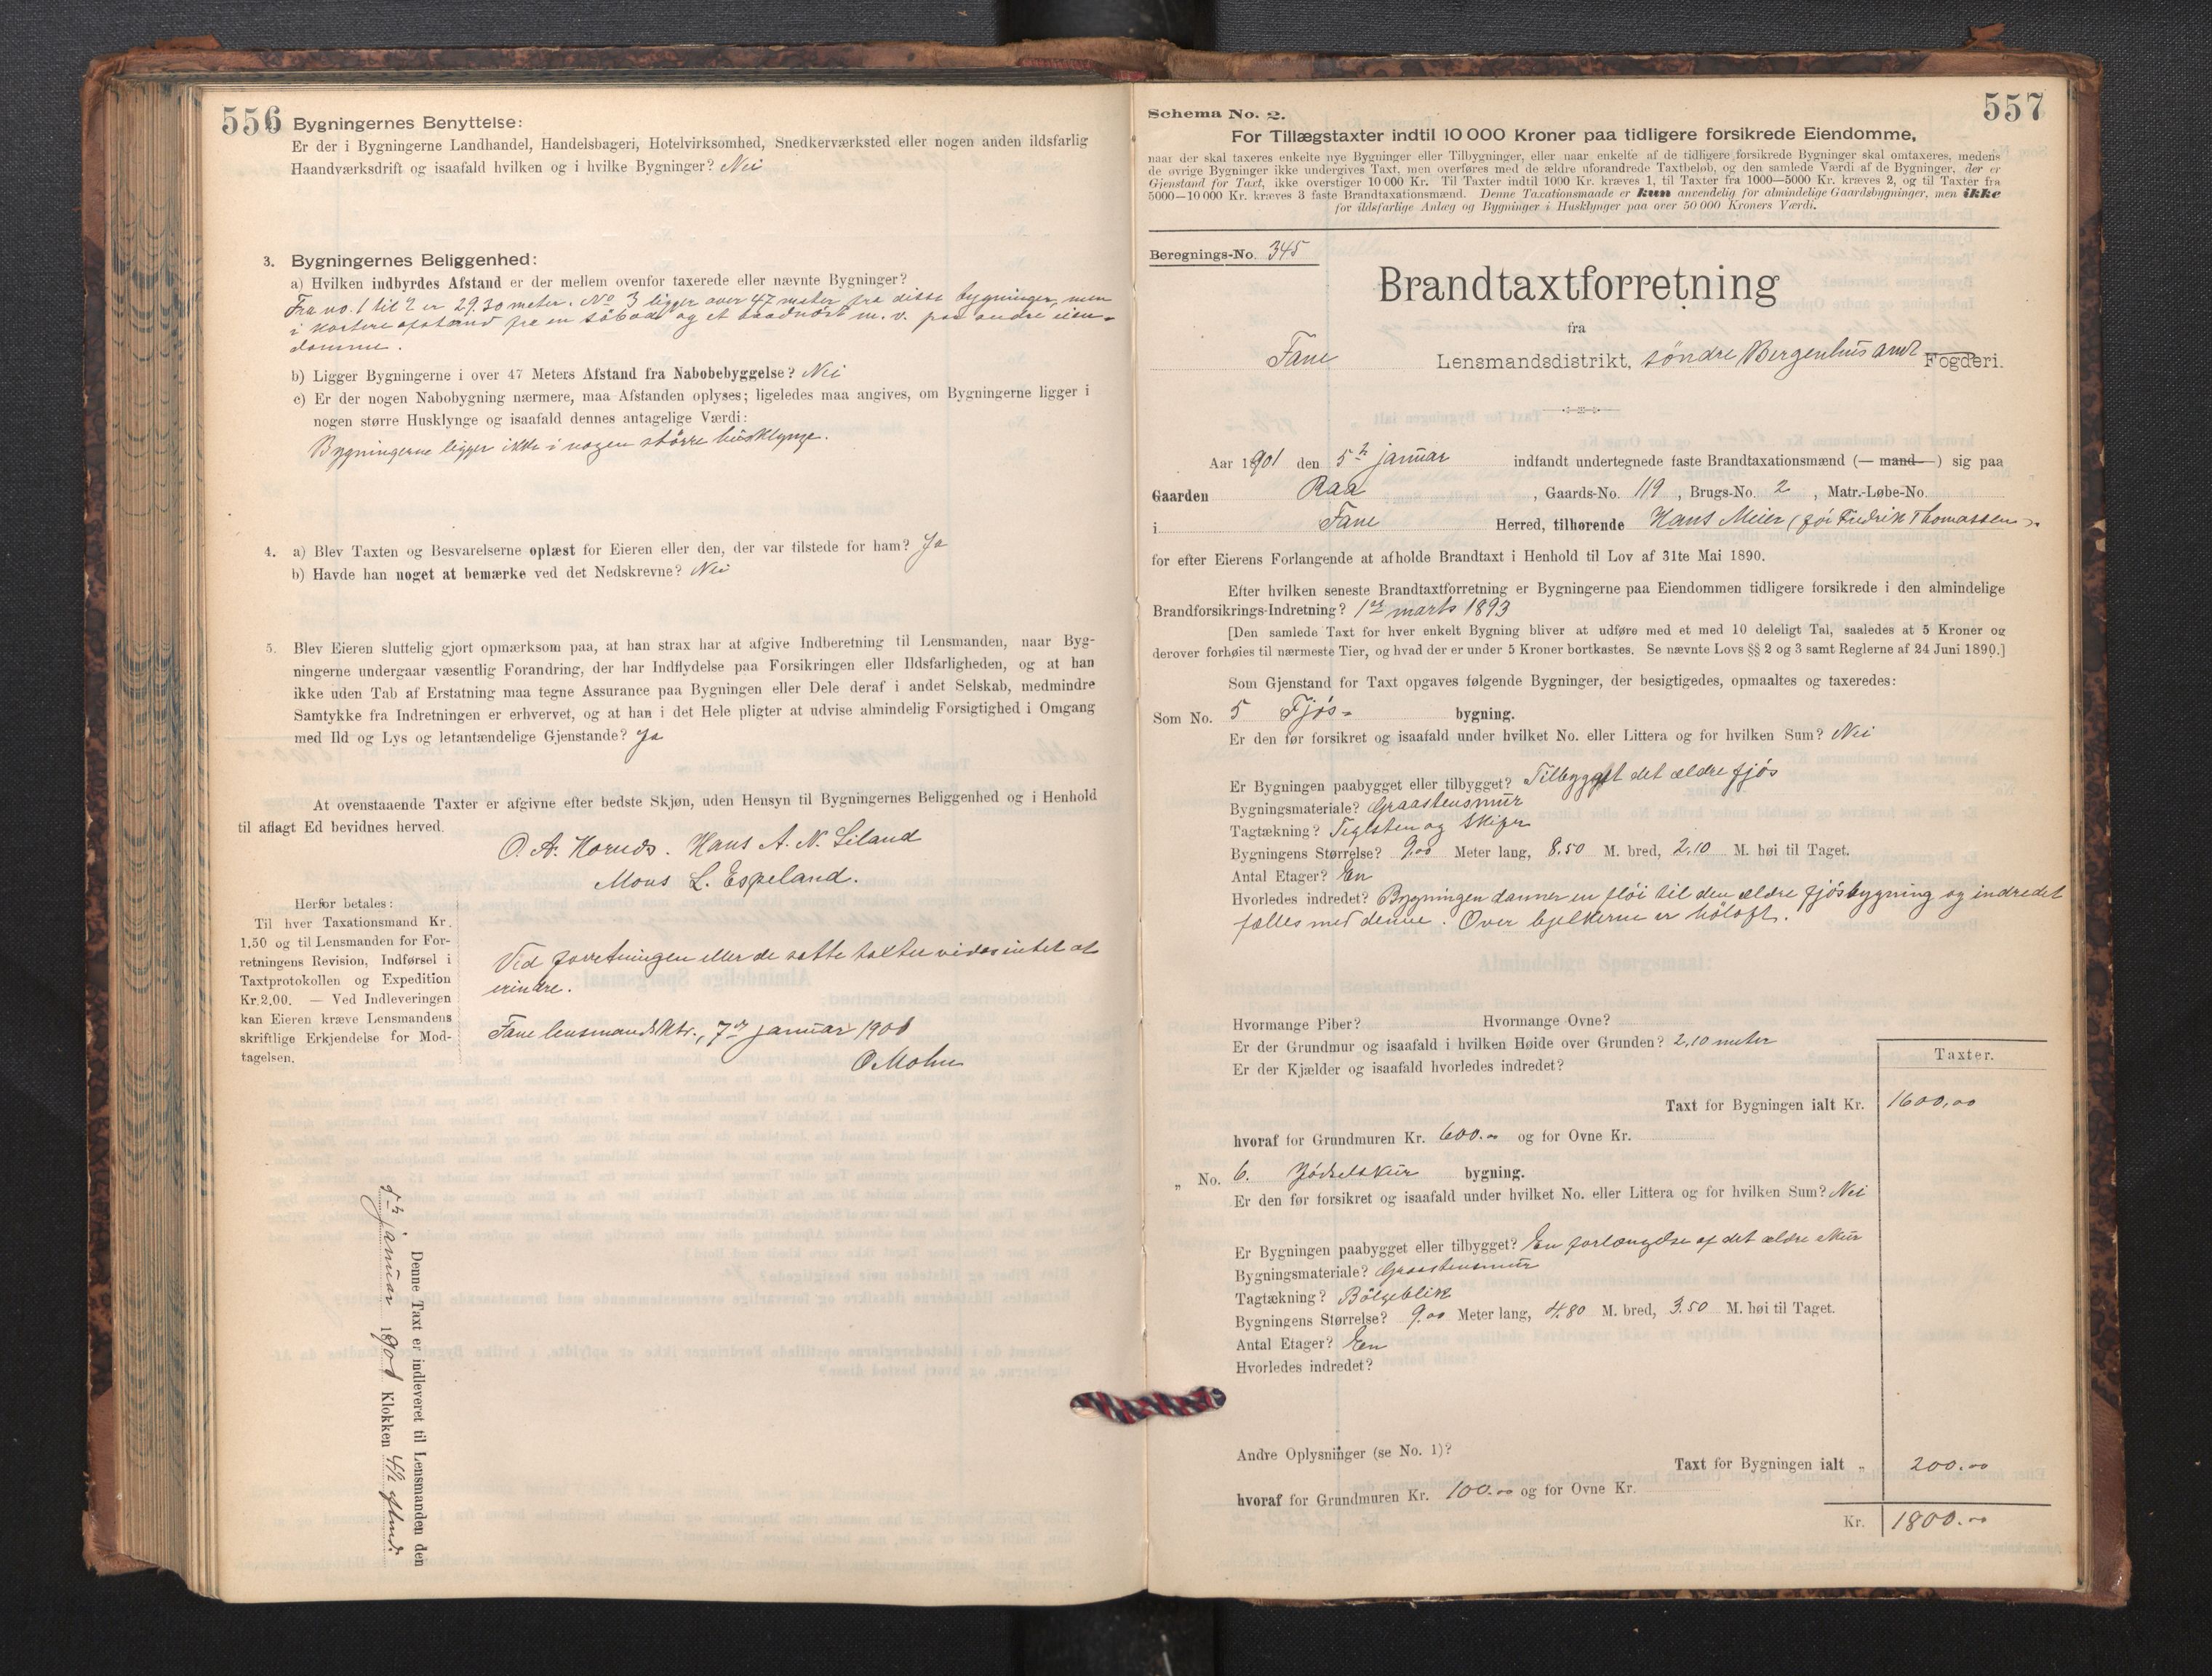 556
Bygningernes Benyttelse:
Er der i Bygningerne Landhandel, Handelsbageri, Hotelvirksomhed, Snedkerværksted eller nogen anden ildsfarlig
Haandværksdrift og isaafald hvilken og i hvilke Bygninger? Nei
3. Bygningernes Beliggenhed:
a) Hvilken indbyrdes Afstand er der mellem ovenfor taxerede eller nævnte Bygninger?
Fra no. 1 til 2 er 29.30 meter. No 3 ligger over 47 meter fra disse bygninger, men
i kortere afstand fra en söbod og et baadnöst m. v. paa andre eien-
domme.
b) Ligger Bygningerne i over 47 Meters Afstand fra Nabobebyggelse? Nei
c) Er der nogen Nabobygning nærmere, maa Afstanden oplyses; ligeledes maa angives, om Bygningerne ligger i
nogen større Husklynge og isaafald dennes antagelige Værdi:
Bygningerne ligger ikke i nogen större husklynge.
4. a) Blev Taxten og Besvarelserne oplæst for Eieren eller den, der var tilstede for ham? Ja
b) Havde han noget at bemærke ved det Nedskrevne? Nei
5. Blev Eieren sluttelig gjort opmærksom paa, at han strax har at afgive Indberetning til Lensmanden, naar Byg-
ningerne undergaar væsentlig Forandring, der har Indflydelse paa Forsikringen eller Ildsfarligheden, og at han
ikke uden Tab af Erstatning maa tegne Assurance paa Bygningen eller Dele deraf i andet Selskab, medmindre
Samtykke fra Indretningen er erhvervet, og at han i det Hele pligter at udvise almindelig Forsigtighed i Omgang
med Ild og Lys og letantændelige Gjenstande? Ja
At ovenstaaende Taxter er afgivne efter bedste Skjøn, uden Hensyn til Bygningernes Beliggenhed og i Henhold
til aflagt Ed bevidnes herved.
O. A. Hans A. N. Liland
Mons L. Espeland.
Herfor betales:
Til hver Taxationsmand Kr.
1.50 og til Lensmanden for For-
retningens Revision, Indførsel i
Taxtprotokollen og Expedition
Kr. 2.00. — Ved Indleveringen
kan Eieren kræve Lensmandens
skriftlige Erkjendelse for Mod-
tagelsen.
Ved forretningen eller de satte taxter vides intet at
erindre.
Fane lensmandsktr., 7de januar 1901
O Mohn
Denne Taxt er indleveret til Lensmanden den
5te januar 1901 Klokken 4½ eftmd.
557
Schema No. 2.
For Tillægstaxter indtil 10 000 Kroner paa tidligere forsikrede Eiendomme,
naar der skal taxeres enkelte nye Bygninger eller Tilbygninger, eller naar enkelte af de tidligere forsikrede Bygninger skal omtaxeres, medens
de øvrige Bygninger ikke undergives Taxt, men overføres med de ældre uforandrede Taxtbeløb, og den samlede Værdi af de Bygninger, der er
Gjenstand for Taxt, ikke overstiger 10 000 Kr. Til Taxter indtil 1000 Kr. kræves 1, til Taxter fra 1000—5000 Kr. kræves 2, og til Taxter fra
5000—10 000 Kr. kræves 3 faste Brandtaxationsmænd. Denne Taxationsmaade er kun anvendelig for almindelige Gaardsbygninger, men ikke
for ildsfarlige Anlæg og Bygninger i Husklynger paa over 50 000 Kroners Værdi.
Beregnings-No. 345
Brandtaxtforretning
fra
Fane Lensmandsdistrikt, söndre Bergenhus amt Fogderi.
Aar 1901 den 5te januar indfandt undertegnede faste Brandtaxationsmænd (— mand —) sig paa
Gaarden Raa, Gaards-No. 119, Brugs-No. 2, Matr.-Løbe-No.
i Fane Herred, tilhørende Hans Meier (för Fredrik Thomassen).
for efter Eierens Forlangende at afholde Brandtaxt i Henhold til Lov af 31te Mai 1890.
Efter hvilken seneste Brandtaxtforretning er Bygningerne paa Eiendommen tidligere forsikrede i den almindelige
Brandforsikrings-Indretning? 1ste marts 1893
[Den samlede Taxt for hver enkelt Bygning bliver at udføre med et med 10 deleligt Tal, saaledes at 5 Kroner og
derover forhøies til nærmeste Tier, og hvad der er under 5 Kroner bortkastes. Se nævnte Lovs §§ 2 og 3 samt Reglerne af 24 Juni 1890.]
Som Gjenstand for Taxt opgaves følgende Bygninger, der besigtigedes, opmaaltes og taxeredes:
Som No. 5 Fjös- bygning.
Er den før forsikret og isaafald under hvilket No. eller Littera og for hvilken Sum? Nei
Er Bygningen paabygget eller tilbygget? Tilbygget det ældre fjös
Bygningsmateriale? Graastensmur
Tagtækning? Teglsten og Skifer
Bygningens Størrelse? 9.00 Meter lang, 8.50 M. bred, 2.10 M. høi til Taget.
Antal Etager? En
Hvorledes indredet? Bygningen danner en flöi til den ældre fjösbygning og indredet
fælles med denne. Over bjelkerne er höloft.
Hvormange Piber? Hvormange Ovne?
Er der Grundmur og isaafald i hvilken Høide over Grunden? 2.10 meter
Er der Kjælder og isaafald hvorledes indredet?
Taxter.
Taxt for Bygningen ialt Kr. 1600,00
hvoraf for Grundmuren Kr. 600.00 og for Ovne Kr.
„ No. 6. Gjödselskur bygning.
Er den før forsikret og isaafald under hvilket No. eller Littera og for hvilken Sum? Nei
Er Bygningen paabygget eller tilbygget? En forlængelse af det ældre skur
Bygningsmateriale? Graastensmur
Tagtækning? Bölgeblik
Bygningens Størrelse? 9.00 Meter lang, 4.80 M. bred, 3.50 M. høi til Taget.
Antal Etager? En
Hvorledes indredet?
Andre Oplysninger (se No. 1)?
Taxt for Bygningen ialt „ 200.00
hvoraf for Grundmuren Kr. 100.00 og for Ovne Kr.
Kr. 1800.00